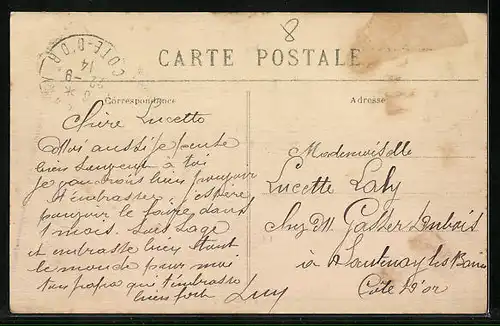 8
CARTE POSTALE
COTE-D'OR
22 -9
14
Correspondance
Adresse
Chère Lucette
Moi aussi je pense
bien souvent à toi
je voudrais bien pouvoir
t'embrasser j'espère
pouvoir le faire dans
1 mois. Sois sage
et embrasse bien tout
le monde pour moi
ton papa qui t'embrasse
bien fort Luy
Mademoiselle
Lucette Laly
chez M. Gasser Dubois
à Santenay les Bains
Côte d'or